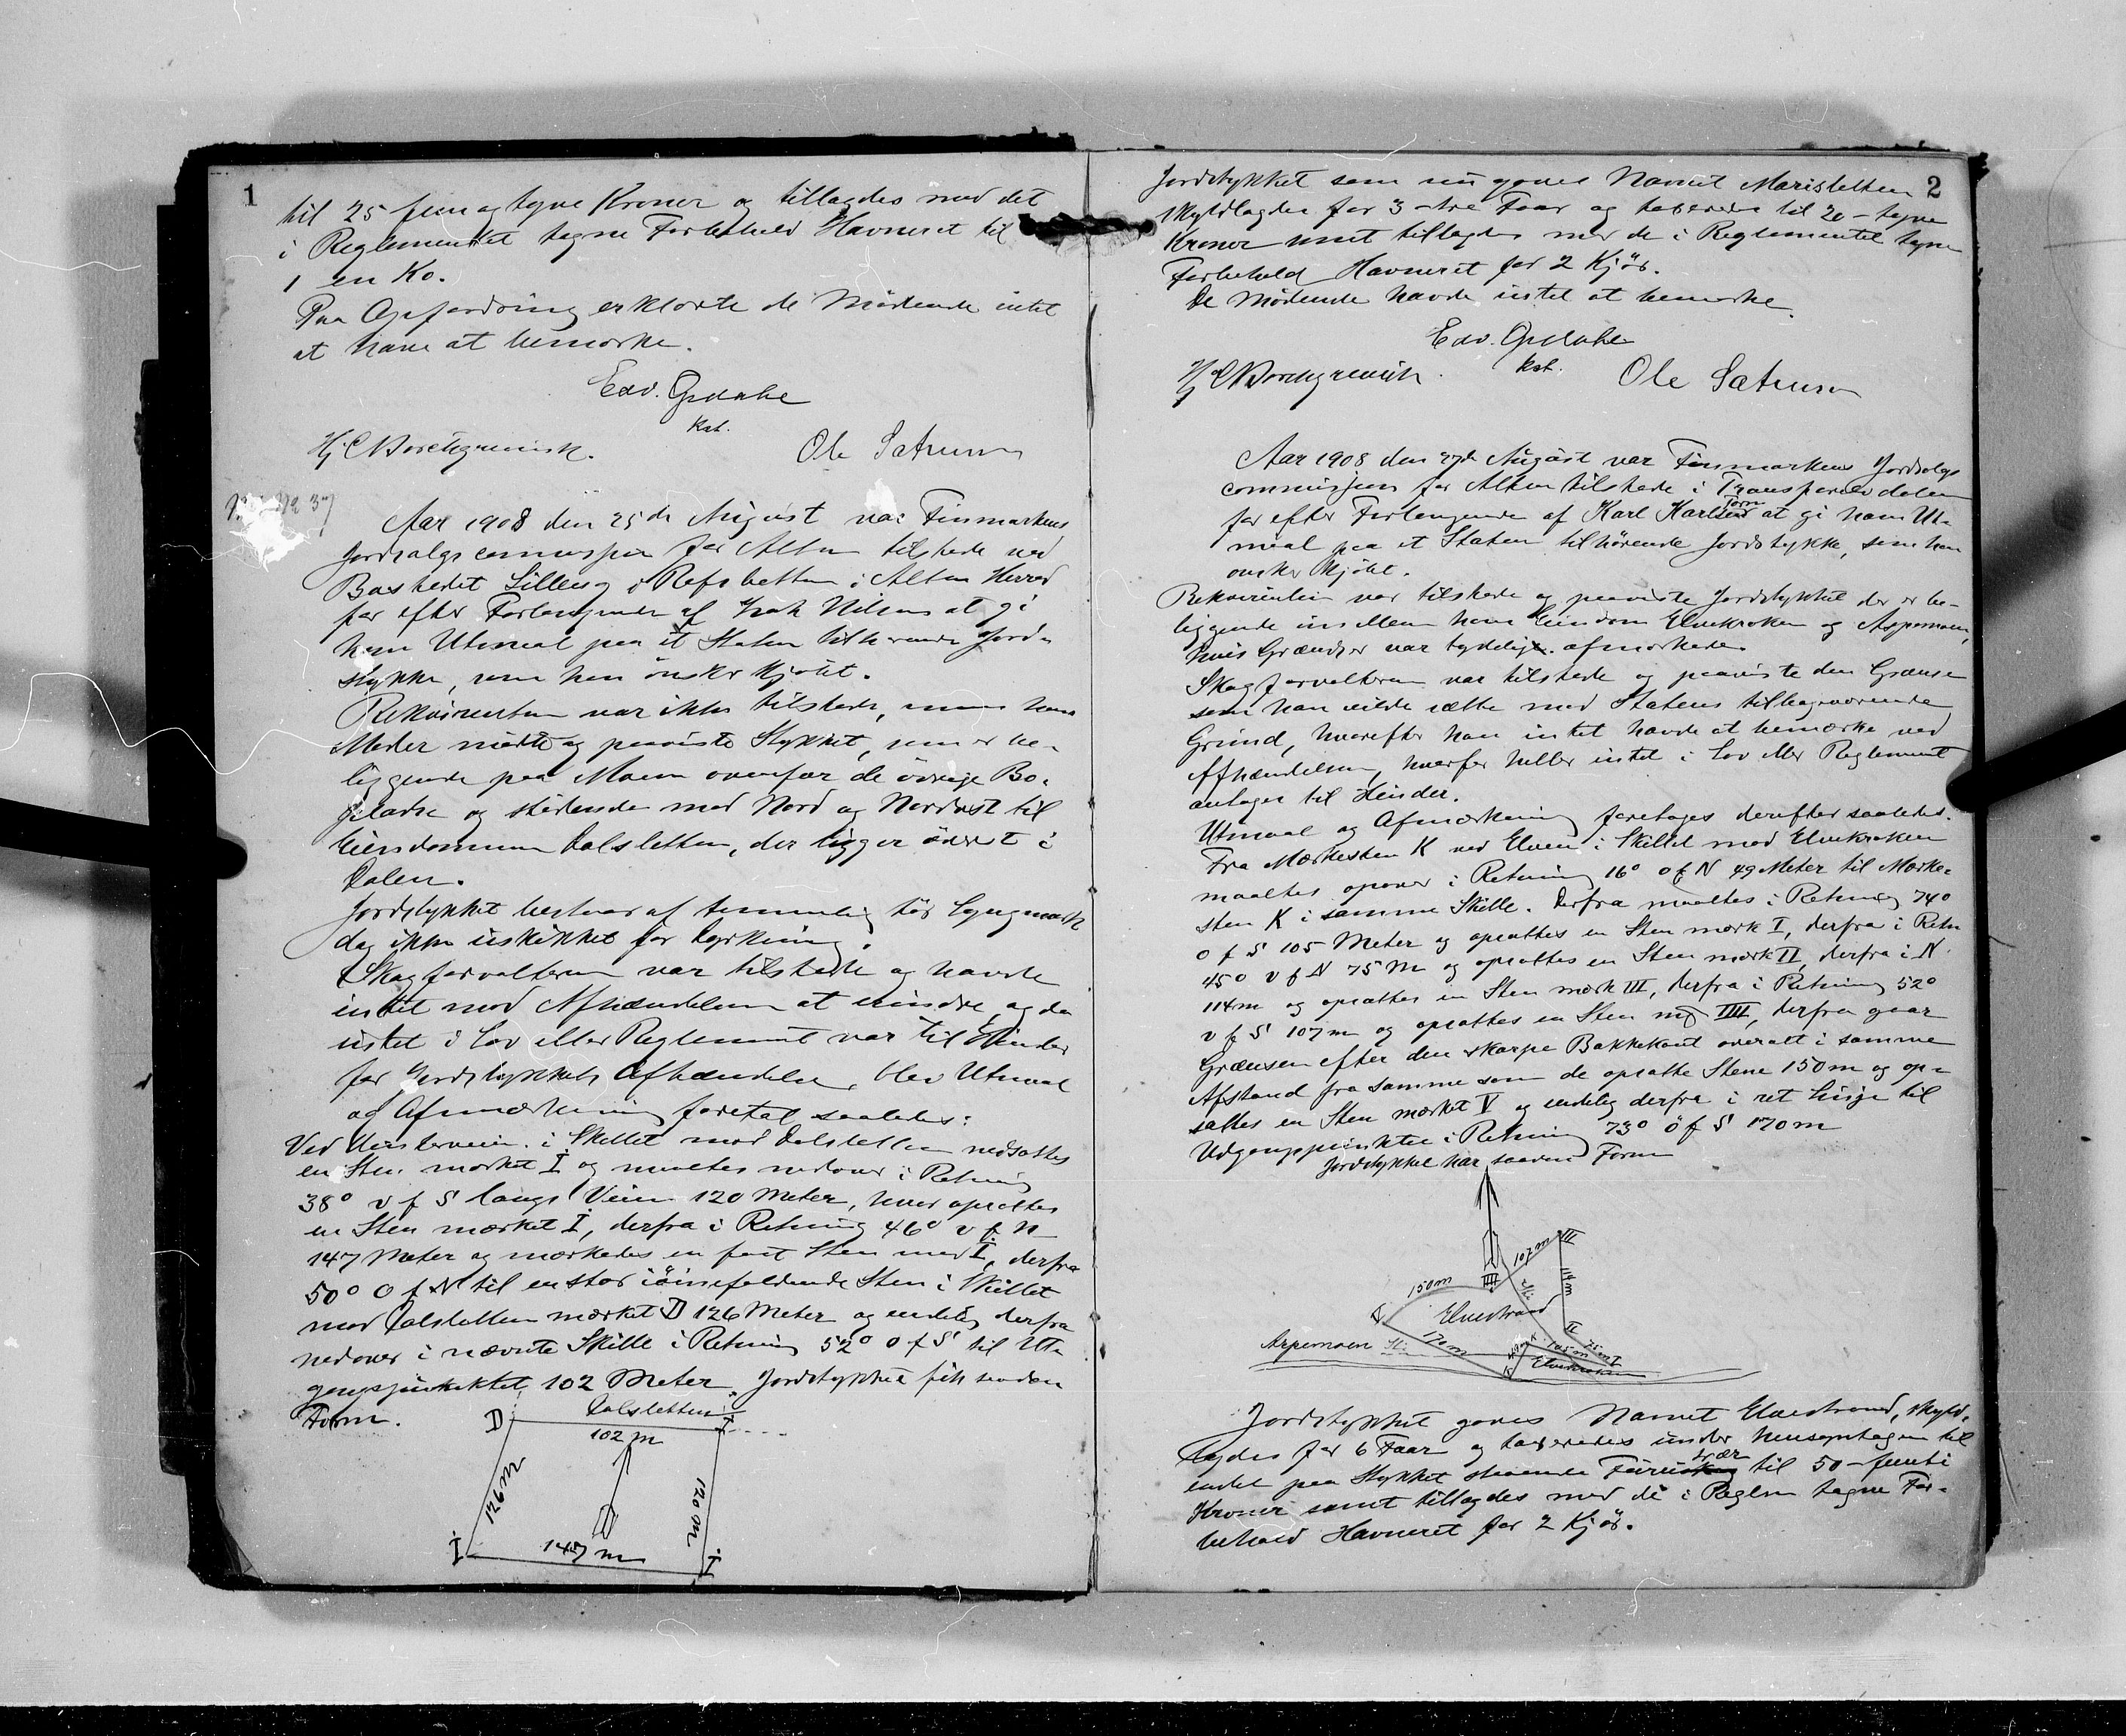 1
til 25 fem og tyve Kroner og tillagdes med det
i Reglementet tagne Forbehold Havneret til
1 en Ko.
Paa Opfordring erklærte de Mødende intet
at have at bemærke.
Edv. Opdahl
kst.
Ole Sætrum
Aar 1908 den 25de August var Finmarkens
Jordsalgscommission for Alten tilstede ved
Bostedet i Refsbotten i Alten Herred
for efter Forlangende af Nilsen at gi
ham Utmaal paa et Staten tilhørende Jord-
stykke, som han ønsker kjøbt.
Rekvirenten var ikke tilstede, men hans
Moder mødte og paaviste Stykket, som er be-
liggende paa Moen ovenfor de øvrige Bo-
pladse og stødende mod Nord og Nordvest til
Eiendommen Dalsletten, der ligger øverst i
Dalen.
Jordstykket bestaar af temmelig tør Lyngmark
dog ikke uskikket for Dyrkning.
Skogforvalteren var tilstede og havde
intet mod Afhændelsen at erindre, og da
intet i Lov eller Reglement var til Hinder
for Jordstykkets Afhændelse, blev Utmaal
og Afmærkning foretat saaledes:
Ved Vinterveien i Skillet mod Dalsletten nedsattes
en Sten mærket I og maaltes nedover i Retning
38° v f S langs Veien 120 Meter, hvor opsattes
en Sten mærket I, derfra i Retning 46° v f N
147 Meter og mærkedes en fast Sten med I, derfra
50° O f N til en stor iøinefaldende Sten i Skillet
mod Dalsletten mærket D 126 Meter og endelig derfra
nedover i nævnte Skille i Retning 52° O f S til Ut-
gangspunktet 102 Meter. Jordstykket fik saadan
Form.
D Dalsletten I
102 m
126 m
120 m
I 147 m I
2
Jordstykket som nu gaves Navnet Marisletten
skyldlagdes for 3 - tre Faar og taxeredes til 20 - tyve
Kroner samt tillagdes med de i Reglementet tagne
Forbehold Havneret for 2 Kjør.
De Mødende havde intet at bemærke.
Edv. Opdahl
kst.
Ole Sætrum
Aar 1908 den 27de August var Finmarkens Jordsalgs
commission for Alten tilstede i Transfarelvdalen
for efter Forlangende af Karl Karlsen Torn at gi ham Ut-
maal paa et Staten tilhørende Jordstykke, som han
ønsker kjøbt.
Rekvirenten var tilstede og paaviste Jordstykket der er be-
liggende imellem hans Eiendom Elvekroken og Aspemoen,
hvis Grændser var tydelig afmærkede.
Skogforvalteren var tilstede og paaviste den Grænse
som han vilde sætte mod Statens tilbageværende
Grund, hvorefter han intet havde at bemærke ved
Afhændelsen, hvorfor heller intet i Lov eller Reglement
antages til Hinder.
Utmaal og Afmærkning foretages derefter saaledes.
Fra Mærkesten K ved Elven i Skillet mod Elvekroken
maaltes opover i Retning 16° o f N 49 Meter til Mærke-
sten K i samme Skille. Derfra maaltes i Retning 74°
o f S 105 Meter og opsattes en Sten mærk I, derfra i Retn
45° v f N 75 m og opsattes en Sten mærk II, derfra i N.
114 m og opsattes en Sten mærk III, derfra i Retning 52°
v f S 107 m og opsattes en Sten IIII, derfra gaar
Grænsen efter den skarpe Bakkekant overalt i samme
Afstand fra samme som de opsatte Stene 150 m og op-
sattes en Sten mærket V og endelig derfra i ret Linje til
Udgangspunktet i Retning 73° ö f S 170 m
Jordstykket har saadan Form
107 m III
150 m IIII 114 m
V Elvestrand
II
Aspemoen Sti 170 m 105 m 75 m I
K Elvekroken
Jordstykket gaves Navnet Elvestrand, skyld-
lagdes for 6 Faar og taxeredes under Hensyntagen til
endel paa Stykket staaende Furutrær til 50 - femti
Kroner samt tillagdes med de i Reglm tagne For-
behold Havneret for 2 Kjør.